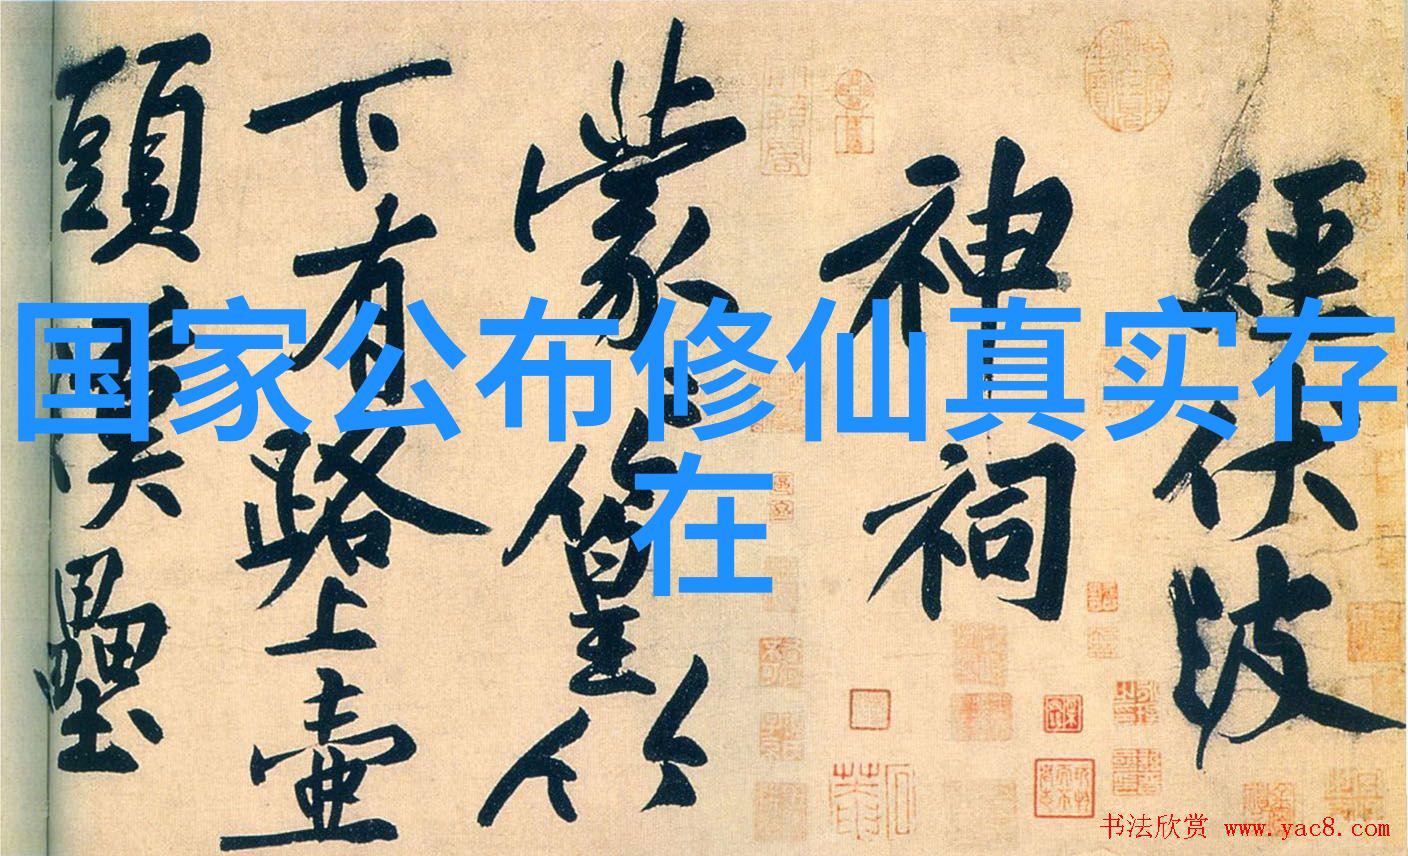 国家公布修仙真实存
在
經伏波
神祠
蒙〻篁竹
下有路上壺
頭漢壘
书法欣赏 www.yac8.com